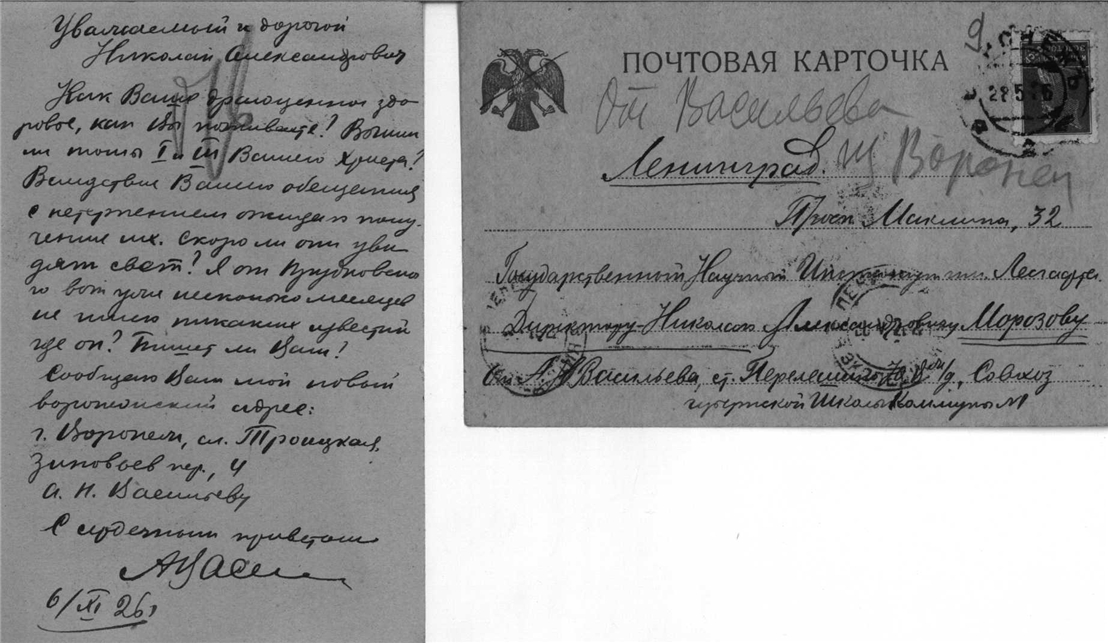 Уважаемый и дорогой
Николай Александрович
Как Ваше драгоценное здо
ровое, как Вы поживаете? Вышли
ли томы I и III Вашего Христа?
Вследствие Вашего обещания
с нетерпением ожидаю полу
чения их. Скоро ли они уви
дят свет? Я от Прудковско
го вот уже несколько месяцев
не имею никаких известий
где он? Пишет ли Вам?
Сообщаю Вам мой новый
воронежский адрес:
г. Воронеж, сл. Троицкая,
Зиновьев пер., 4
А. Н. Васильеву
С сердечным приветом
АВаси
6/XI 26 г
ПОЧТОВАЯ КАРТОЧКА
9
От Васильева
Ленинград.
Воронеж
Просп Маклина, 32
Государственный Научный Институт им. Лесгафта.
Директору Николаю Александровичу Морозову
От А Н Васильева, ст. Перелешино ж/д., Совхоз
губернской Школы Коммуны